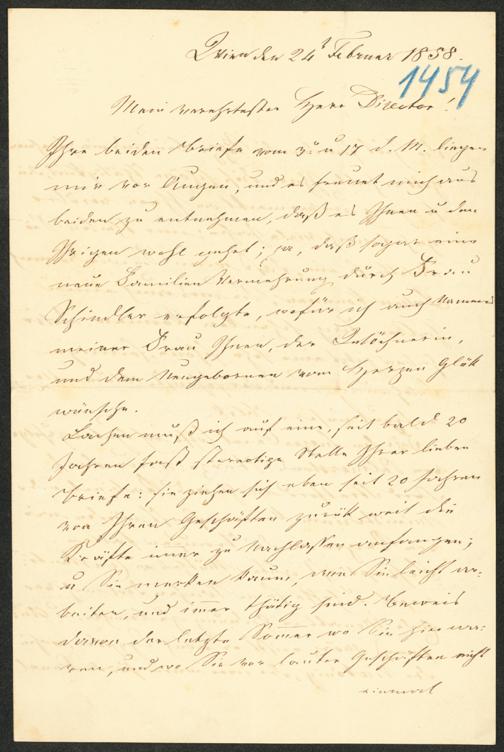 Wien den 24t Februar 1858.
1454
Mein verehrtester Herr Director!
Ihre beiden Briefe vom 3t u 17 d. M. liegen
mir vor Augen, und es freuet mich aus
beiden zu entnehmen, daß es Ihnen u den
Ihrigen wohl gehet; ja, daß sogar eine
neue Familien Vermehrung durch Frau
Schindler erfolgte, wofür ich auch Namens
meiner Frau Ihnen, der Wöchnerin,
und dem Neugebornen vom Herzen Glük
wünsche.
Lachen muß ich auf eine, seit bald 20
Jahren fast stereotipe Stelle Ihrer lieben
Briefe: sie ziehen sich eben seit 20 Jahren
von Ihren Geschäften zurük weil die
Kräfte imer zu Nachlassen anfangen;
u Sie merken kaum, wie Sie leicht ar-
beiten, und imer thätig sind. Beweis
davon der letzte Somer wo Sie hier wa-
ren, und wo Sie vor lauter Geschäften nicht
einmal